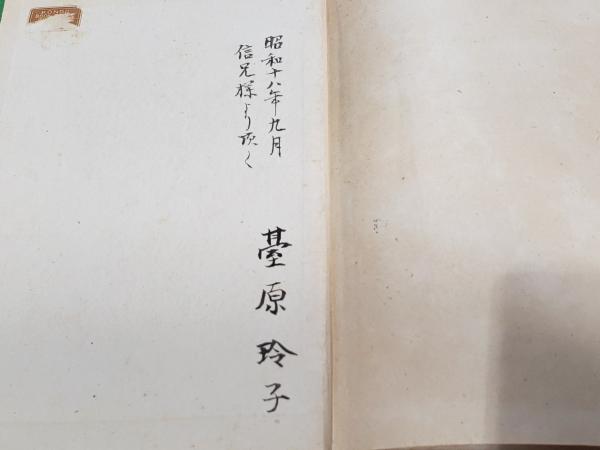 昭和十八年九月
信兄様より頂く
臺原玲子